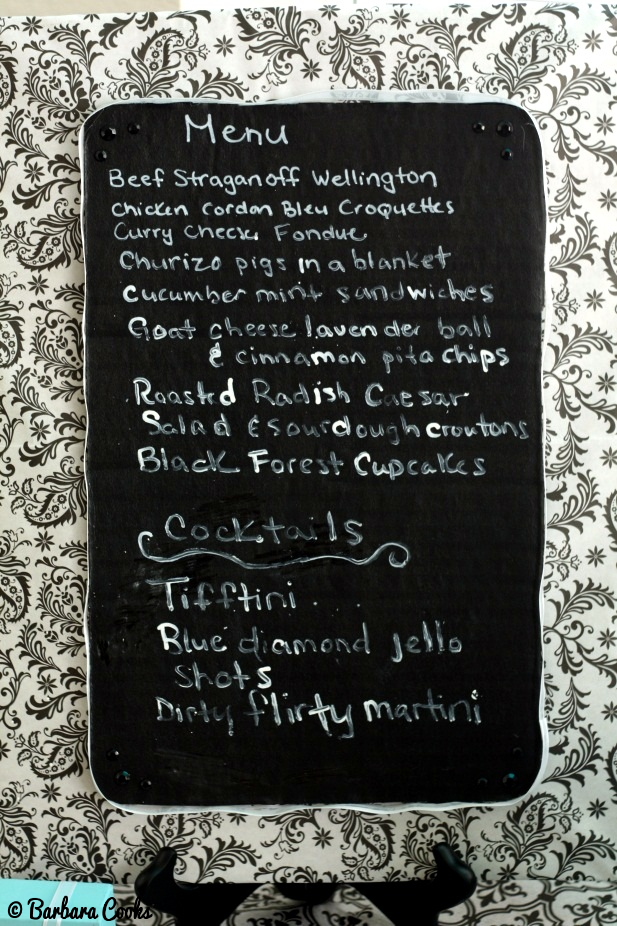 Menu
Beef Straganoff Wellington
Chicken Cordon Bleu Croquettes
Curry Cheese Fondue
Churizo pigs in a blanket
Cucumber mint sandwiches
Goat cheese lavender ball
& cinnamon pita chips
Roasted Radish Caesar
Salad & sourdough croutons
Black Forest Cupcakes
Cocktails
Tifftini
Blue diamond jello
shots
Dirty flirty martini
© Barbara Cooks